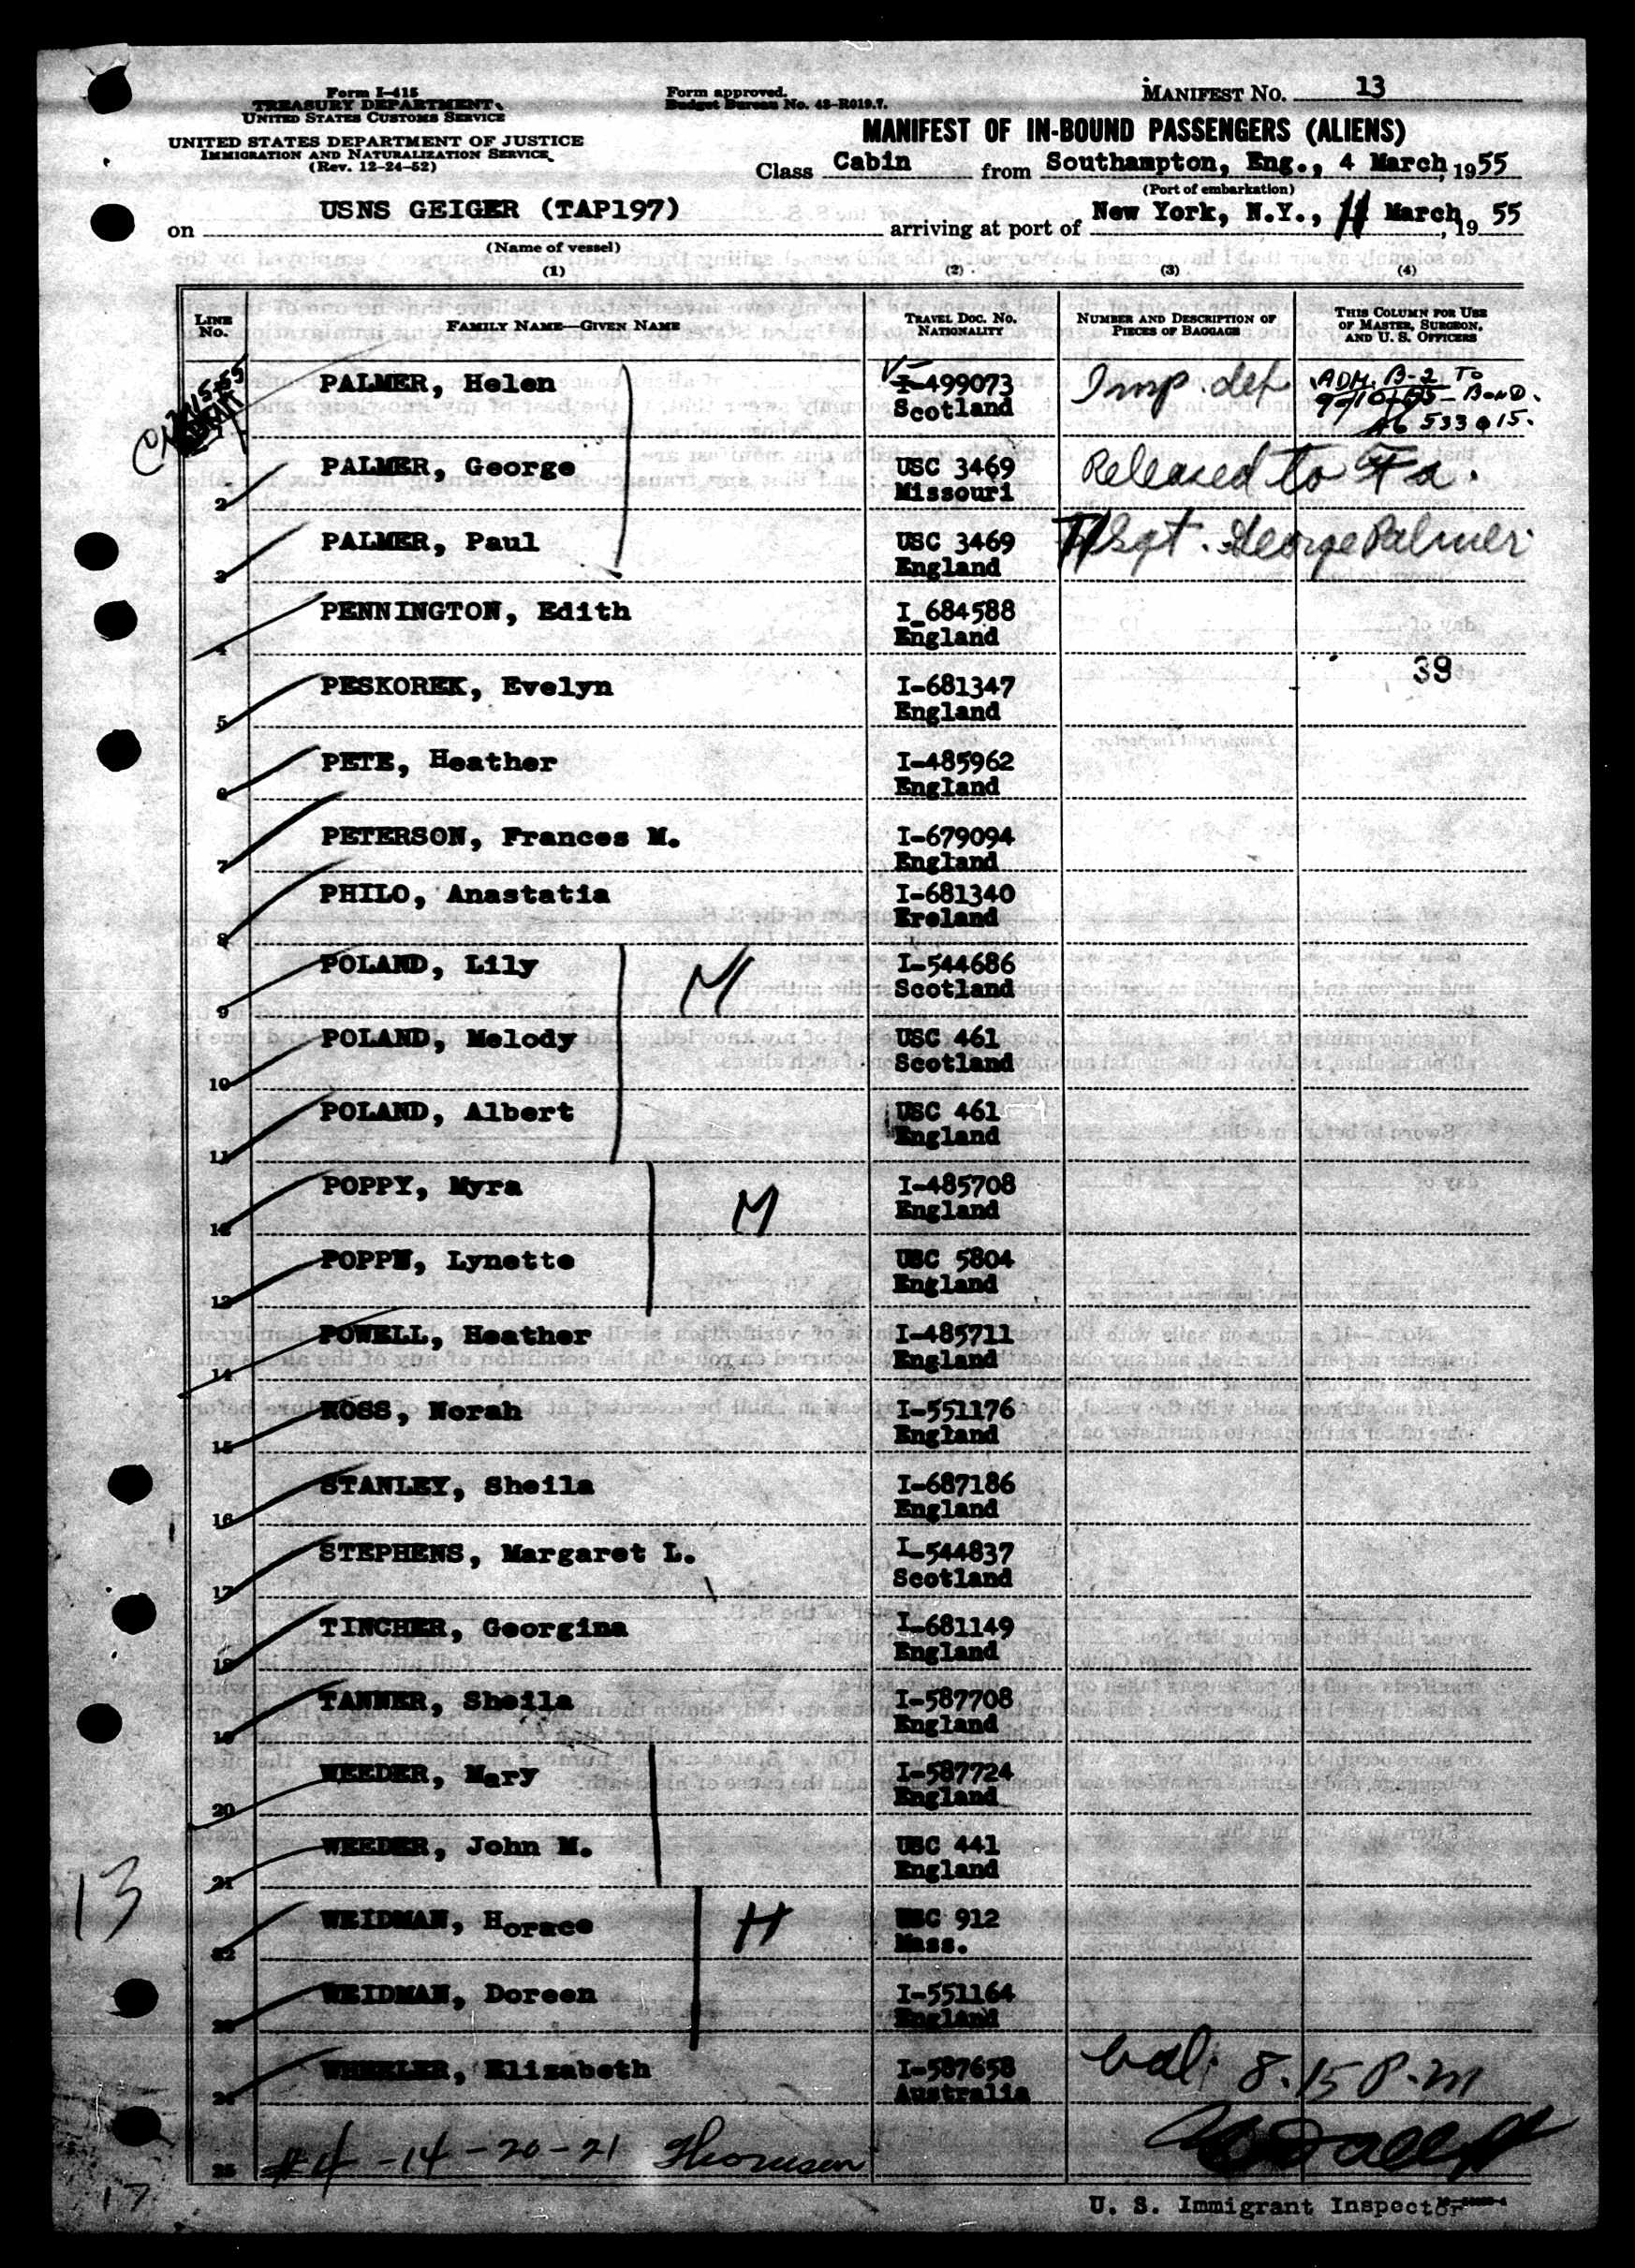 Form I-415
TREASURY DEPARTMENT
UNITED STATES CUSTOMS SERVICE
UNITED STATES DEPARTMENT OF JUSTICE
IMMIGRATION AND NATURALIZATION SERVICE
(Rev. 12-24-52)
Form approved.
Budget Bureau No. 43-R019.7.
MANIFEST NO. 13
MANIFEST OF IN-BOUND PASSENGERS (ALIENS)
Class Cabin from Southampton, Eng., 4 March, 1955
(Port of embarkation)
on USNS GEIGER (TAP197) arriving at port of New York, N.Y., 11 March, 1955
(Name of vessel)
(1) (2) (3) (4)
LINE No. FAMILY NAME—GIVEN NAME TRAVEL DOC. NO. NATIONALITY NUMBER AND DESCRIPTION OF PIECES OF BAGGAGE THIS COLUMN FOR USE OF MASTER, SURGEON, AND U. S. OFFICERS
PALMER, Helen V-499073 Scotland Insp. def ADM. B-2 To 9-10-55- Bond. A6 533015.
2 PALMER, George USC 3469 Missouri Released to Fa.
3 PALMER, Paul USC 3469 England T/Sgt. George Palmer
4 PENNINGTON, Edith I_684588 England
5 PESKOREK, Evelyn I-681347 England 39
6 PETE, Heather I-485962 England
7 PETERSON, Frances M. I-679094 England
8 PHILO, Anastatia I-681340 Ereland
9 POLAND, Lily M I-544686 Scotland
10 POLAND, Melody USC 461 Scotland
11 POLAND, Albert USC 461 England
12 POPPY, Myra M I-485708 England
13 POPPY, Lynette USC 5804 England
14 POWELL, Heather I-485711 England
15 ROSS, Norah I-551176 England
16 STANLEY, Sheila I-687186 England
17 STEPHENS, Margaret L. I-544837 Scotland
18 TINCHER, Georgina I-681149 England
19 TANNER, Sheila I-587708 England
20 WEEDER, Mary I-587724 England
21 WEEDER, John M. USC 441 England
22 WEIDMAN, Horace H USC 912 Mass.
23 WEIDMAN, Doreen I-551164 England
24 WHEELER, Elizabeth I-587658 Australia 8.15 P.M
25 #4 -14 -20 -21 Thomsen
13
17
U. S. Immigrant Inspector